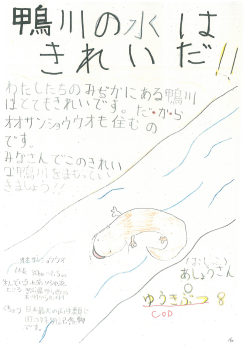 鴨川の水は
きれいだ!!
わたしたちのみぢかにある鴨川
はとてもきれいです。だ・か・ら
オオサンショウウオも住むの
です。
みなさんでこのきれい
な鴨川をまもってい
きましょう!!
オオサンショウウオ
はしっこ
あしょうさん
ゆうきぶつ 8
COD